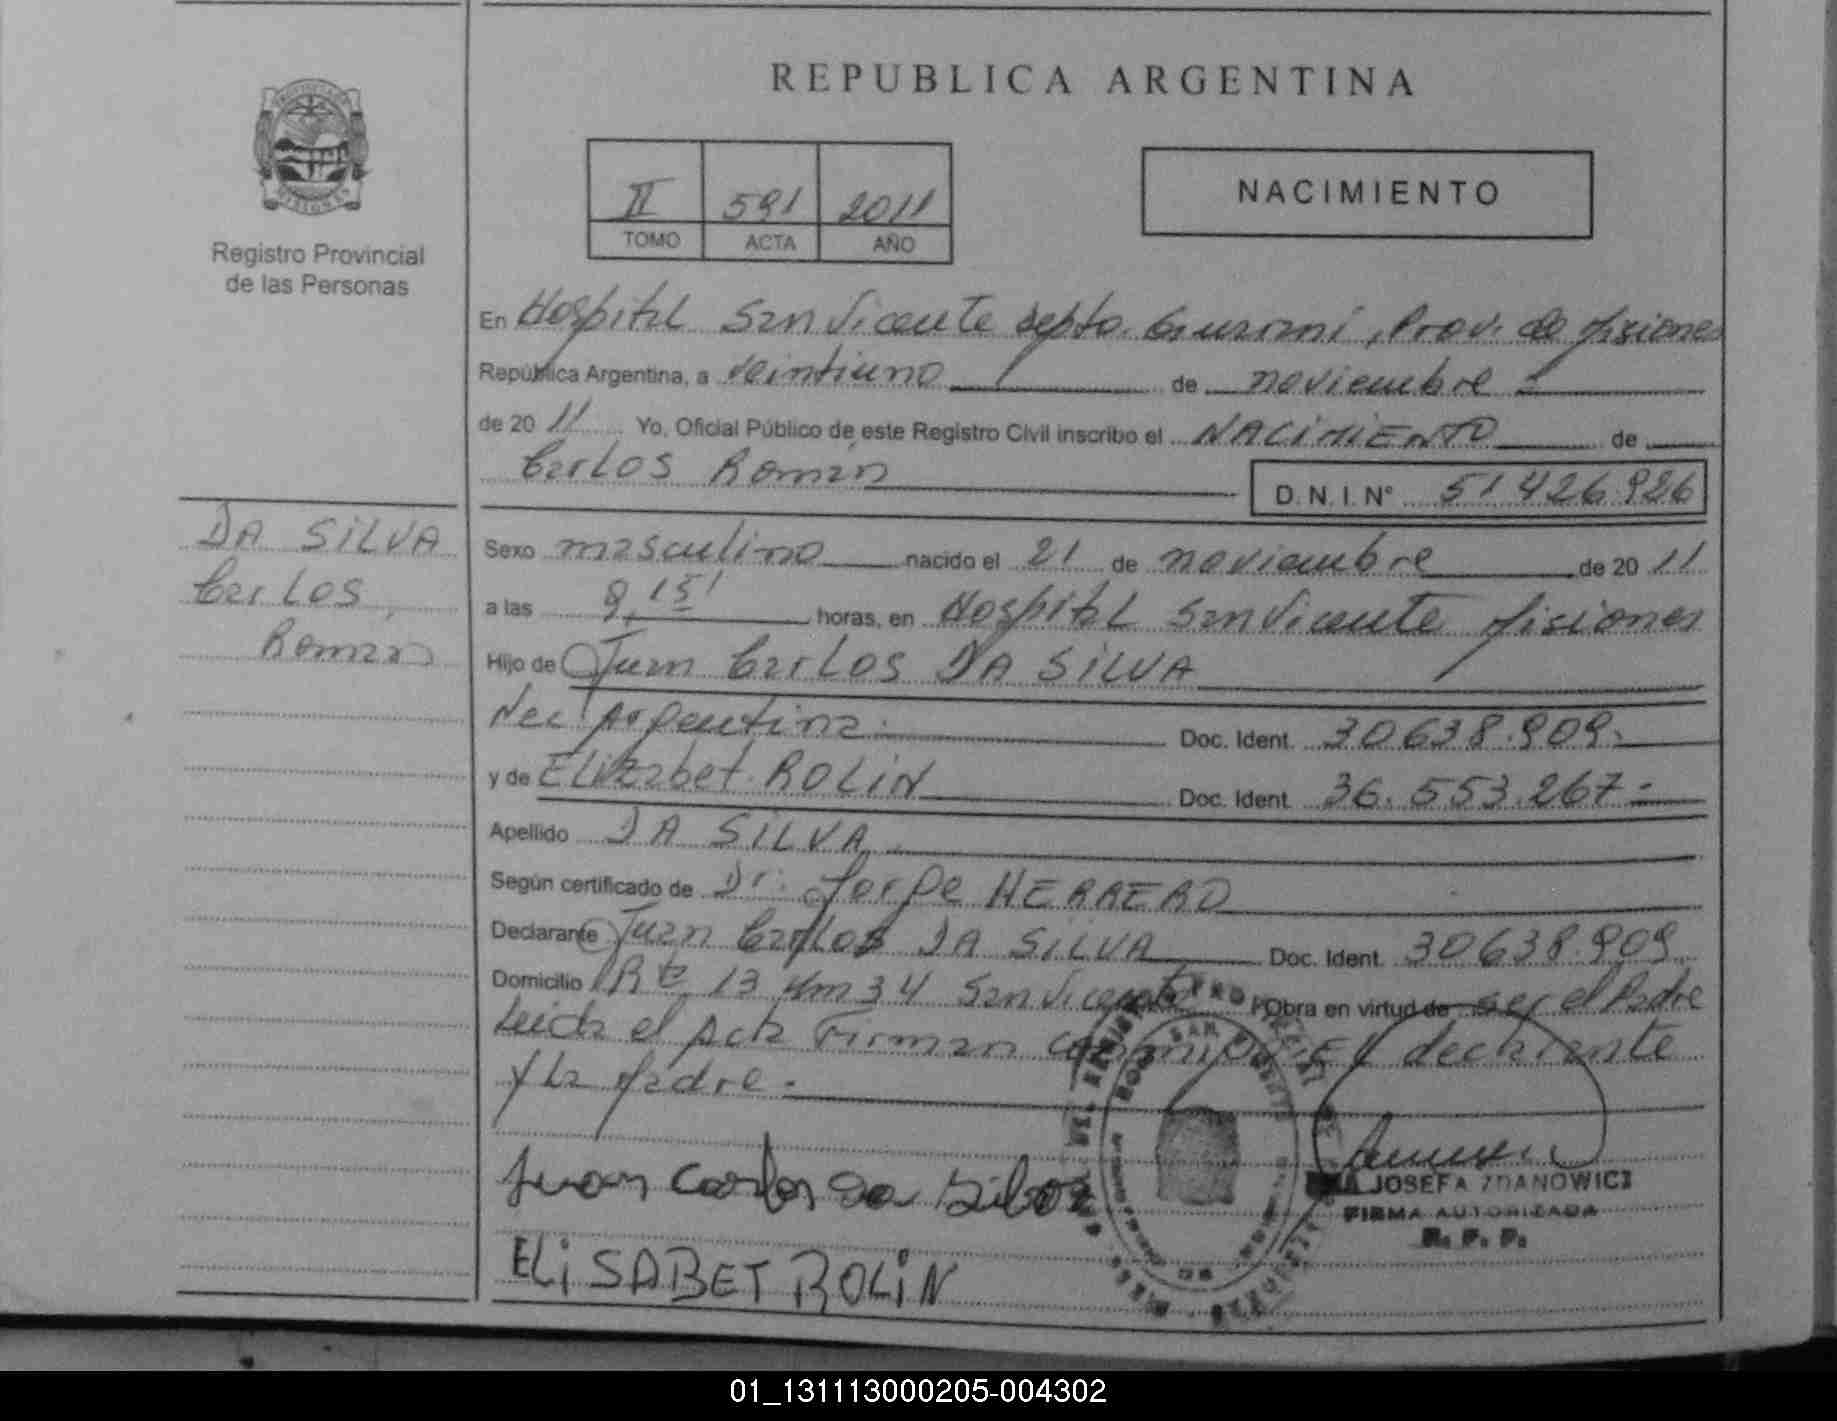 REPUBLICA ARGENTINA
PROVINCIA DE
MISIONES
Registro Provincial
de las Personas
II 591 2011
TOMO ACTA AÑO
NACIMIENTO
En Hospital San Vicente Depto. Guaraní, Prov. de Misiones
República Argentina, a veintiuno de noviembre
de 20 11 Yo, Oficial Público de este Registro Civil inscribo el NACIMIENTO de
Carlos Roman
D.N.I.Nº 51 426.926
DA SILVA
Carlos
Roman
Sexo masculino nacido el 21 de noviembre de 20 11
a las 9,15' horas, en Hospital San Vicente Misiones
Hijo de Juan Carlos DA SILVA
Nac. Argentina. Doc. Ident. 30638.909.
y de Elizabet ROLIN Doc. Ident. 36.553.267.=
Apellido DA SILVA
Según certificado de Dr. Jorge HERRERO
Declarante Juan Carlos DA SILVA Doc. Ident. 30638.909.
Domicilio Rta 13 Km 34 San Vicente Obra en virtud de ser el Padre
Leida el Acta Firman conmigo El declarante
y La Madre.
Juan Carlos da Silva
JOSEFA ZDANOWICZ
FIRMA AUTORIZADA
R. P. P.
ELiSABET ROLiN
01_131113000205-004302